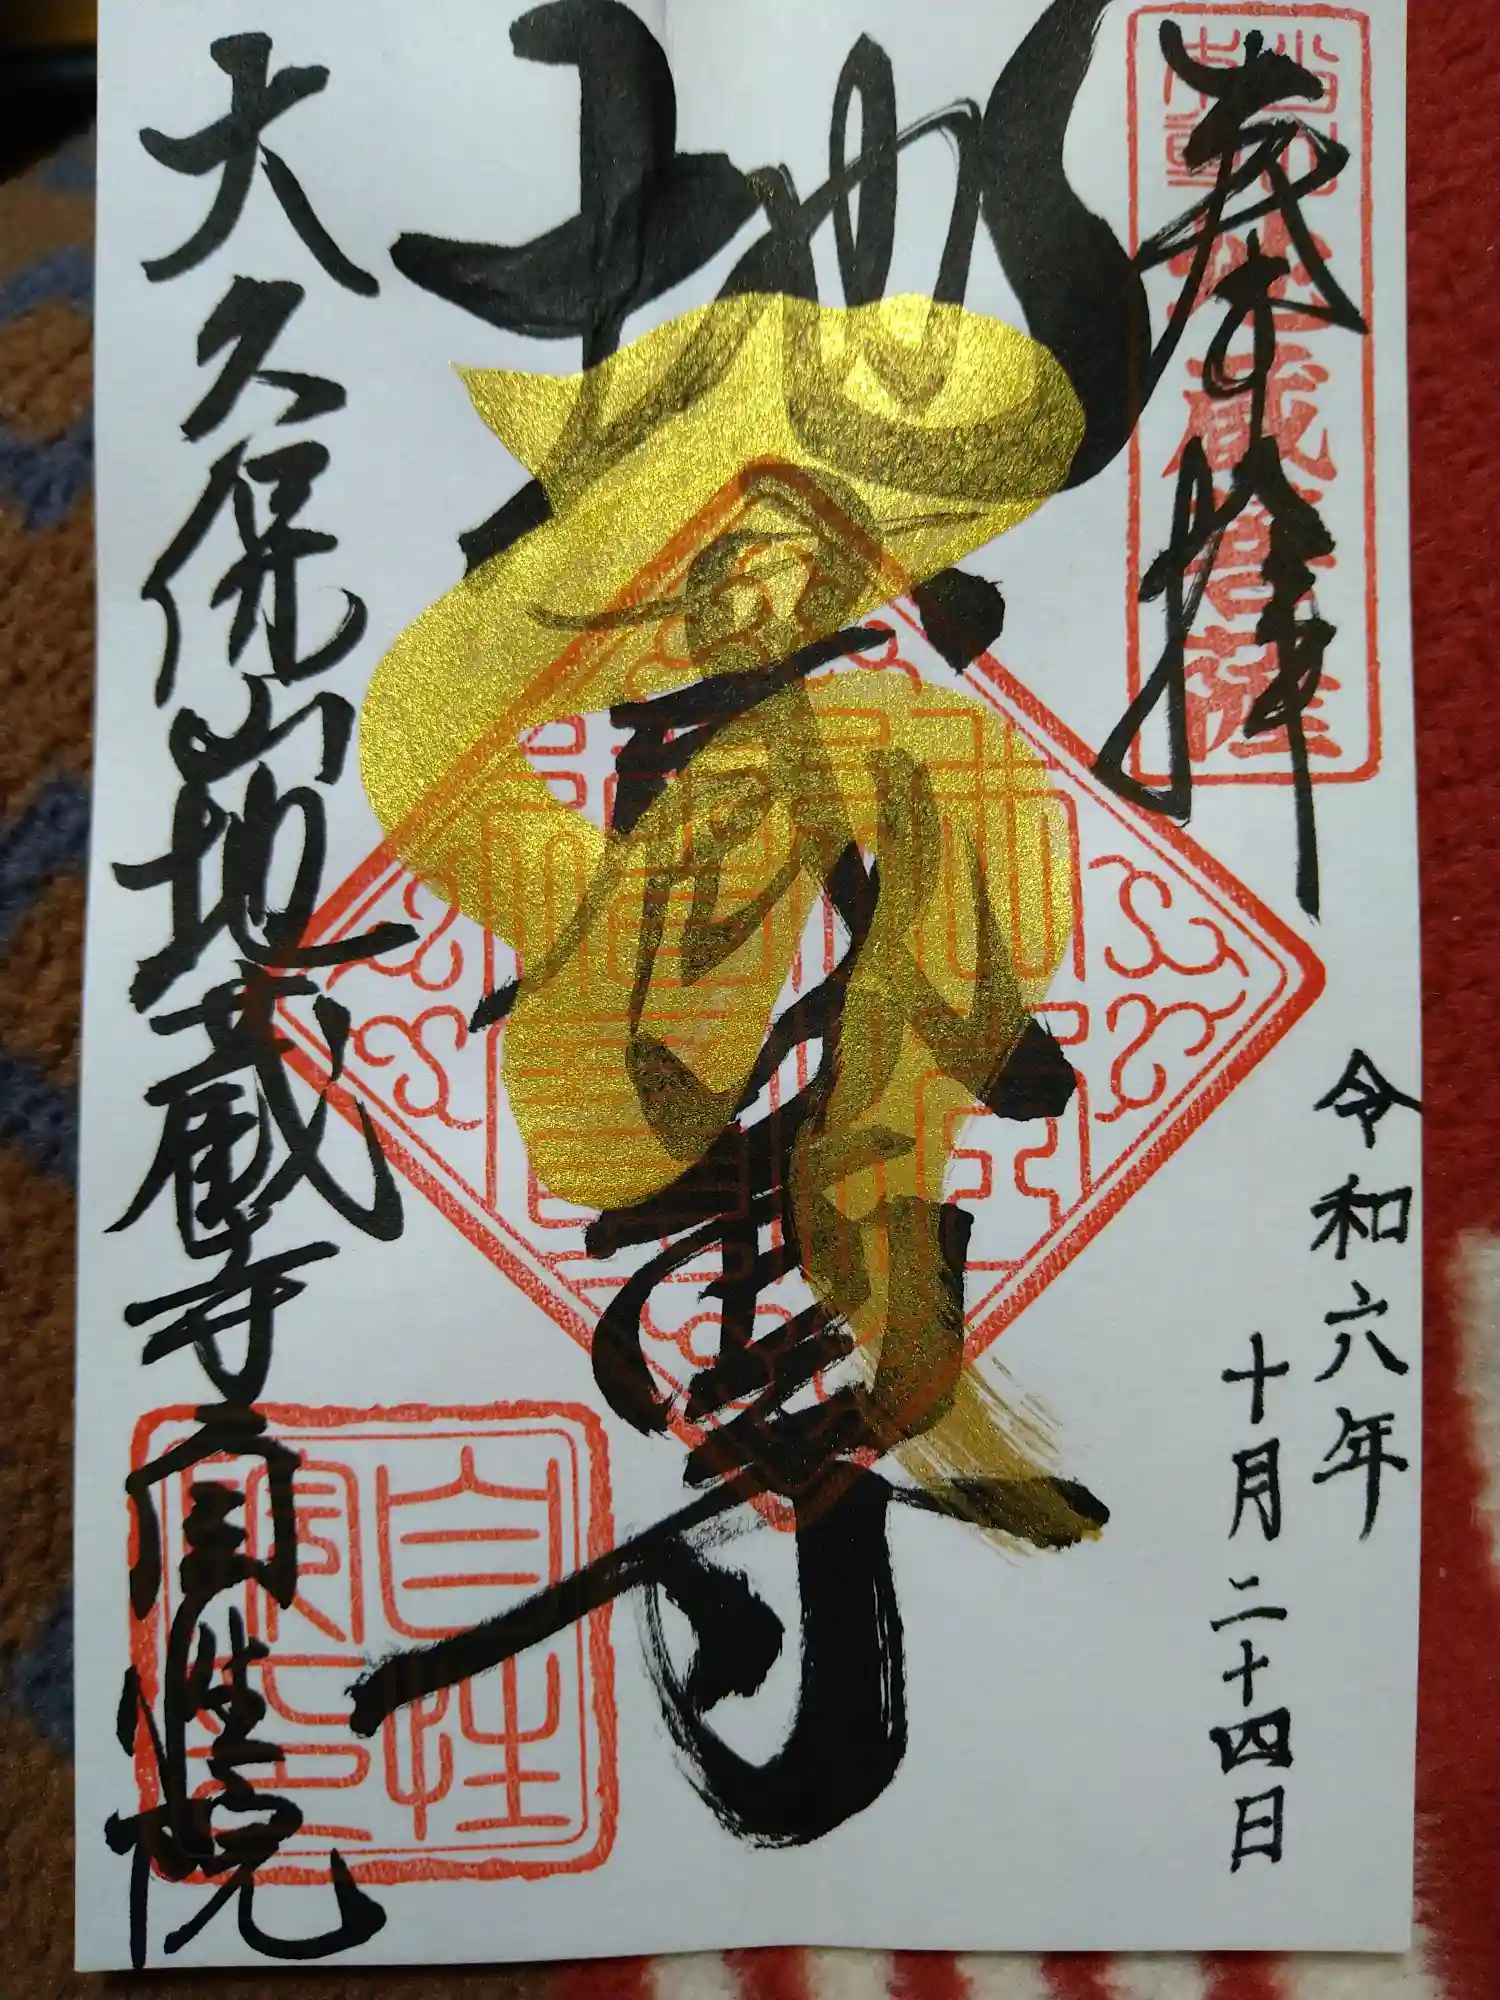 奉拝
地蔵菩薩
令和六年
十月二十四日
地蔵尊
大久保山地蔵寺自性院
自性
院印